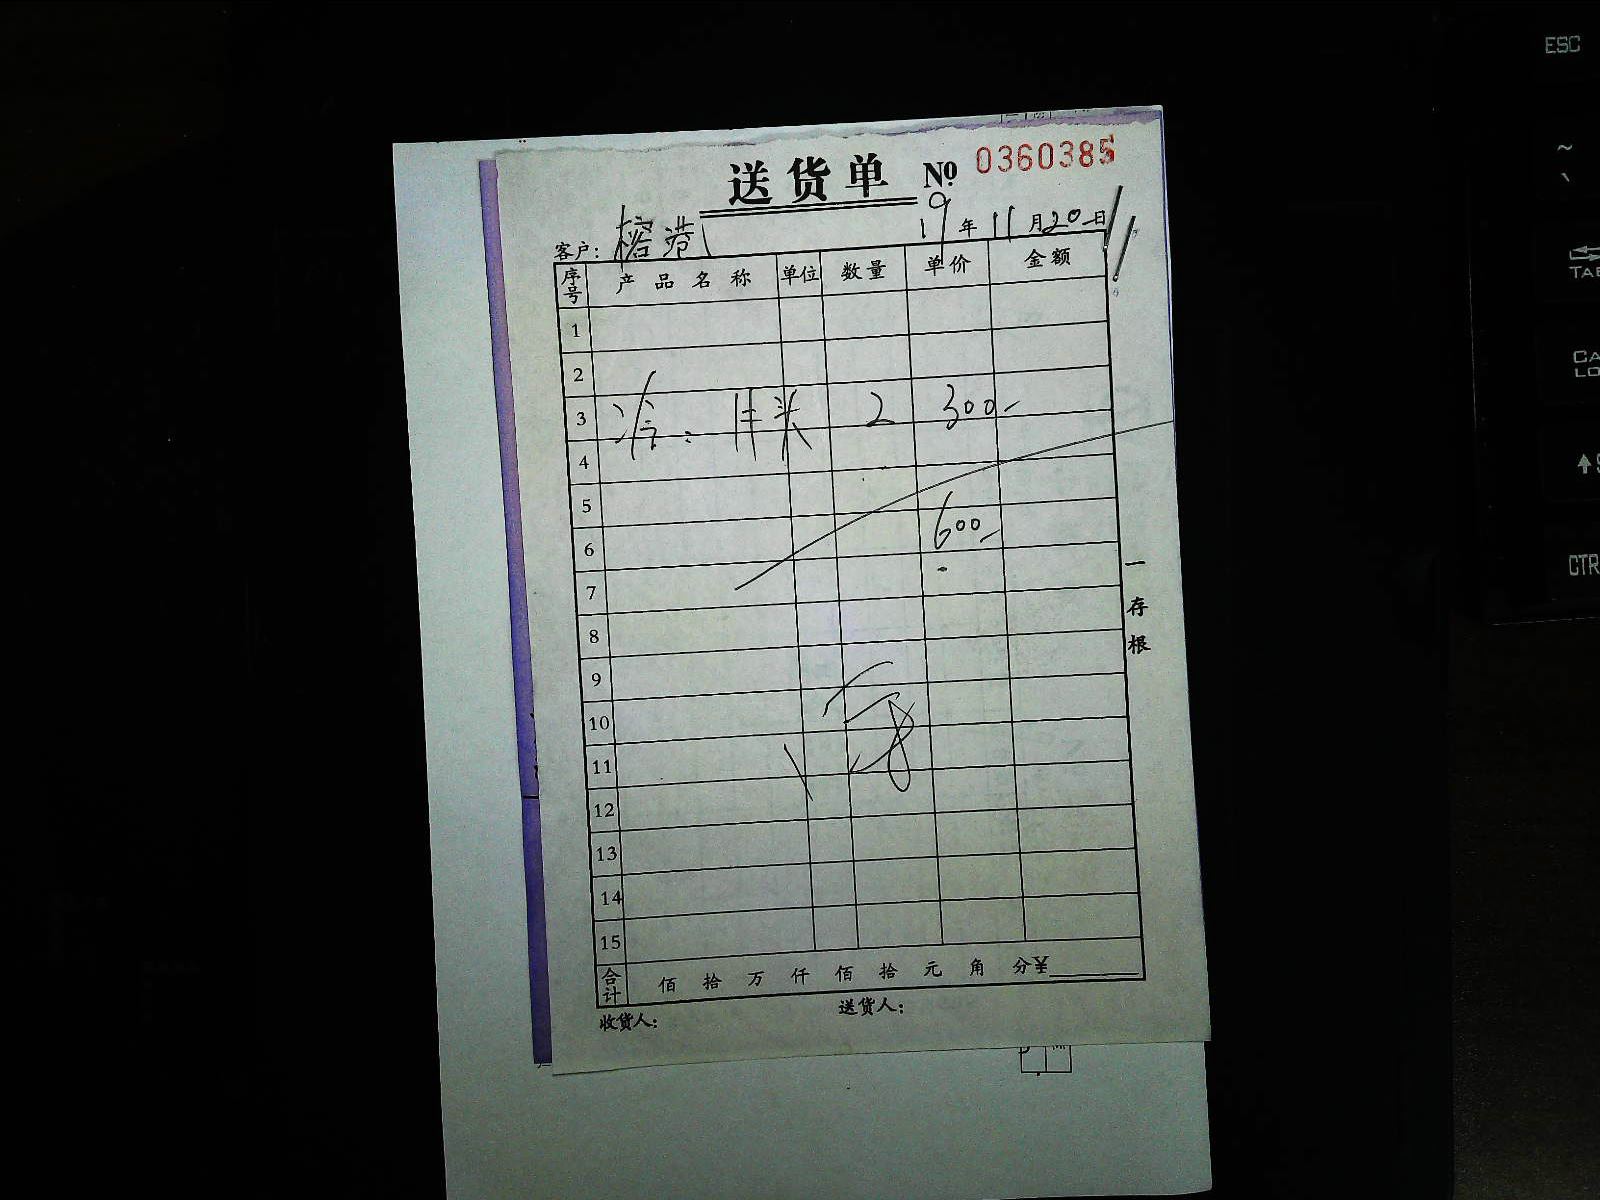 送货单 № 0360385
客户: 榕港 19年11月20日
序号 产品名称 单位 数量 单价 金额
1
2
3 2 300-
4
5
6 600-
7
8
9
10
11
12
13
14
15
合计 佰 拾 万 仟 佰 拾 元 角 分¥
收货人: 送货人:
一存根
ESC
~
TAB
CTR